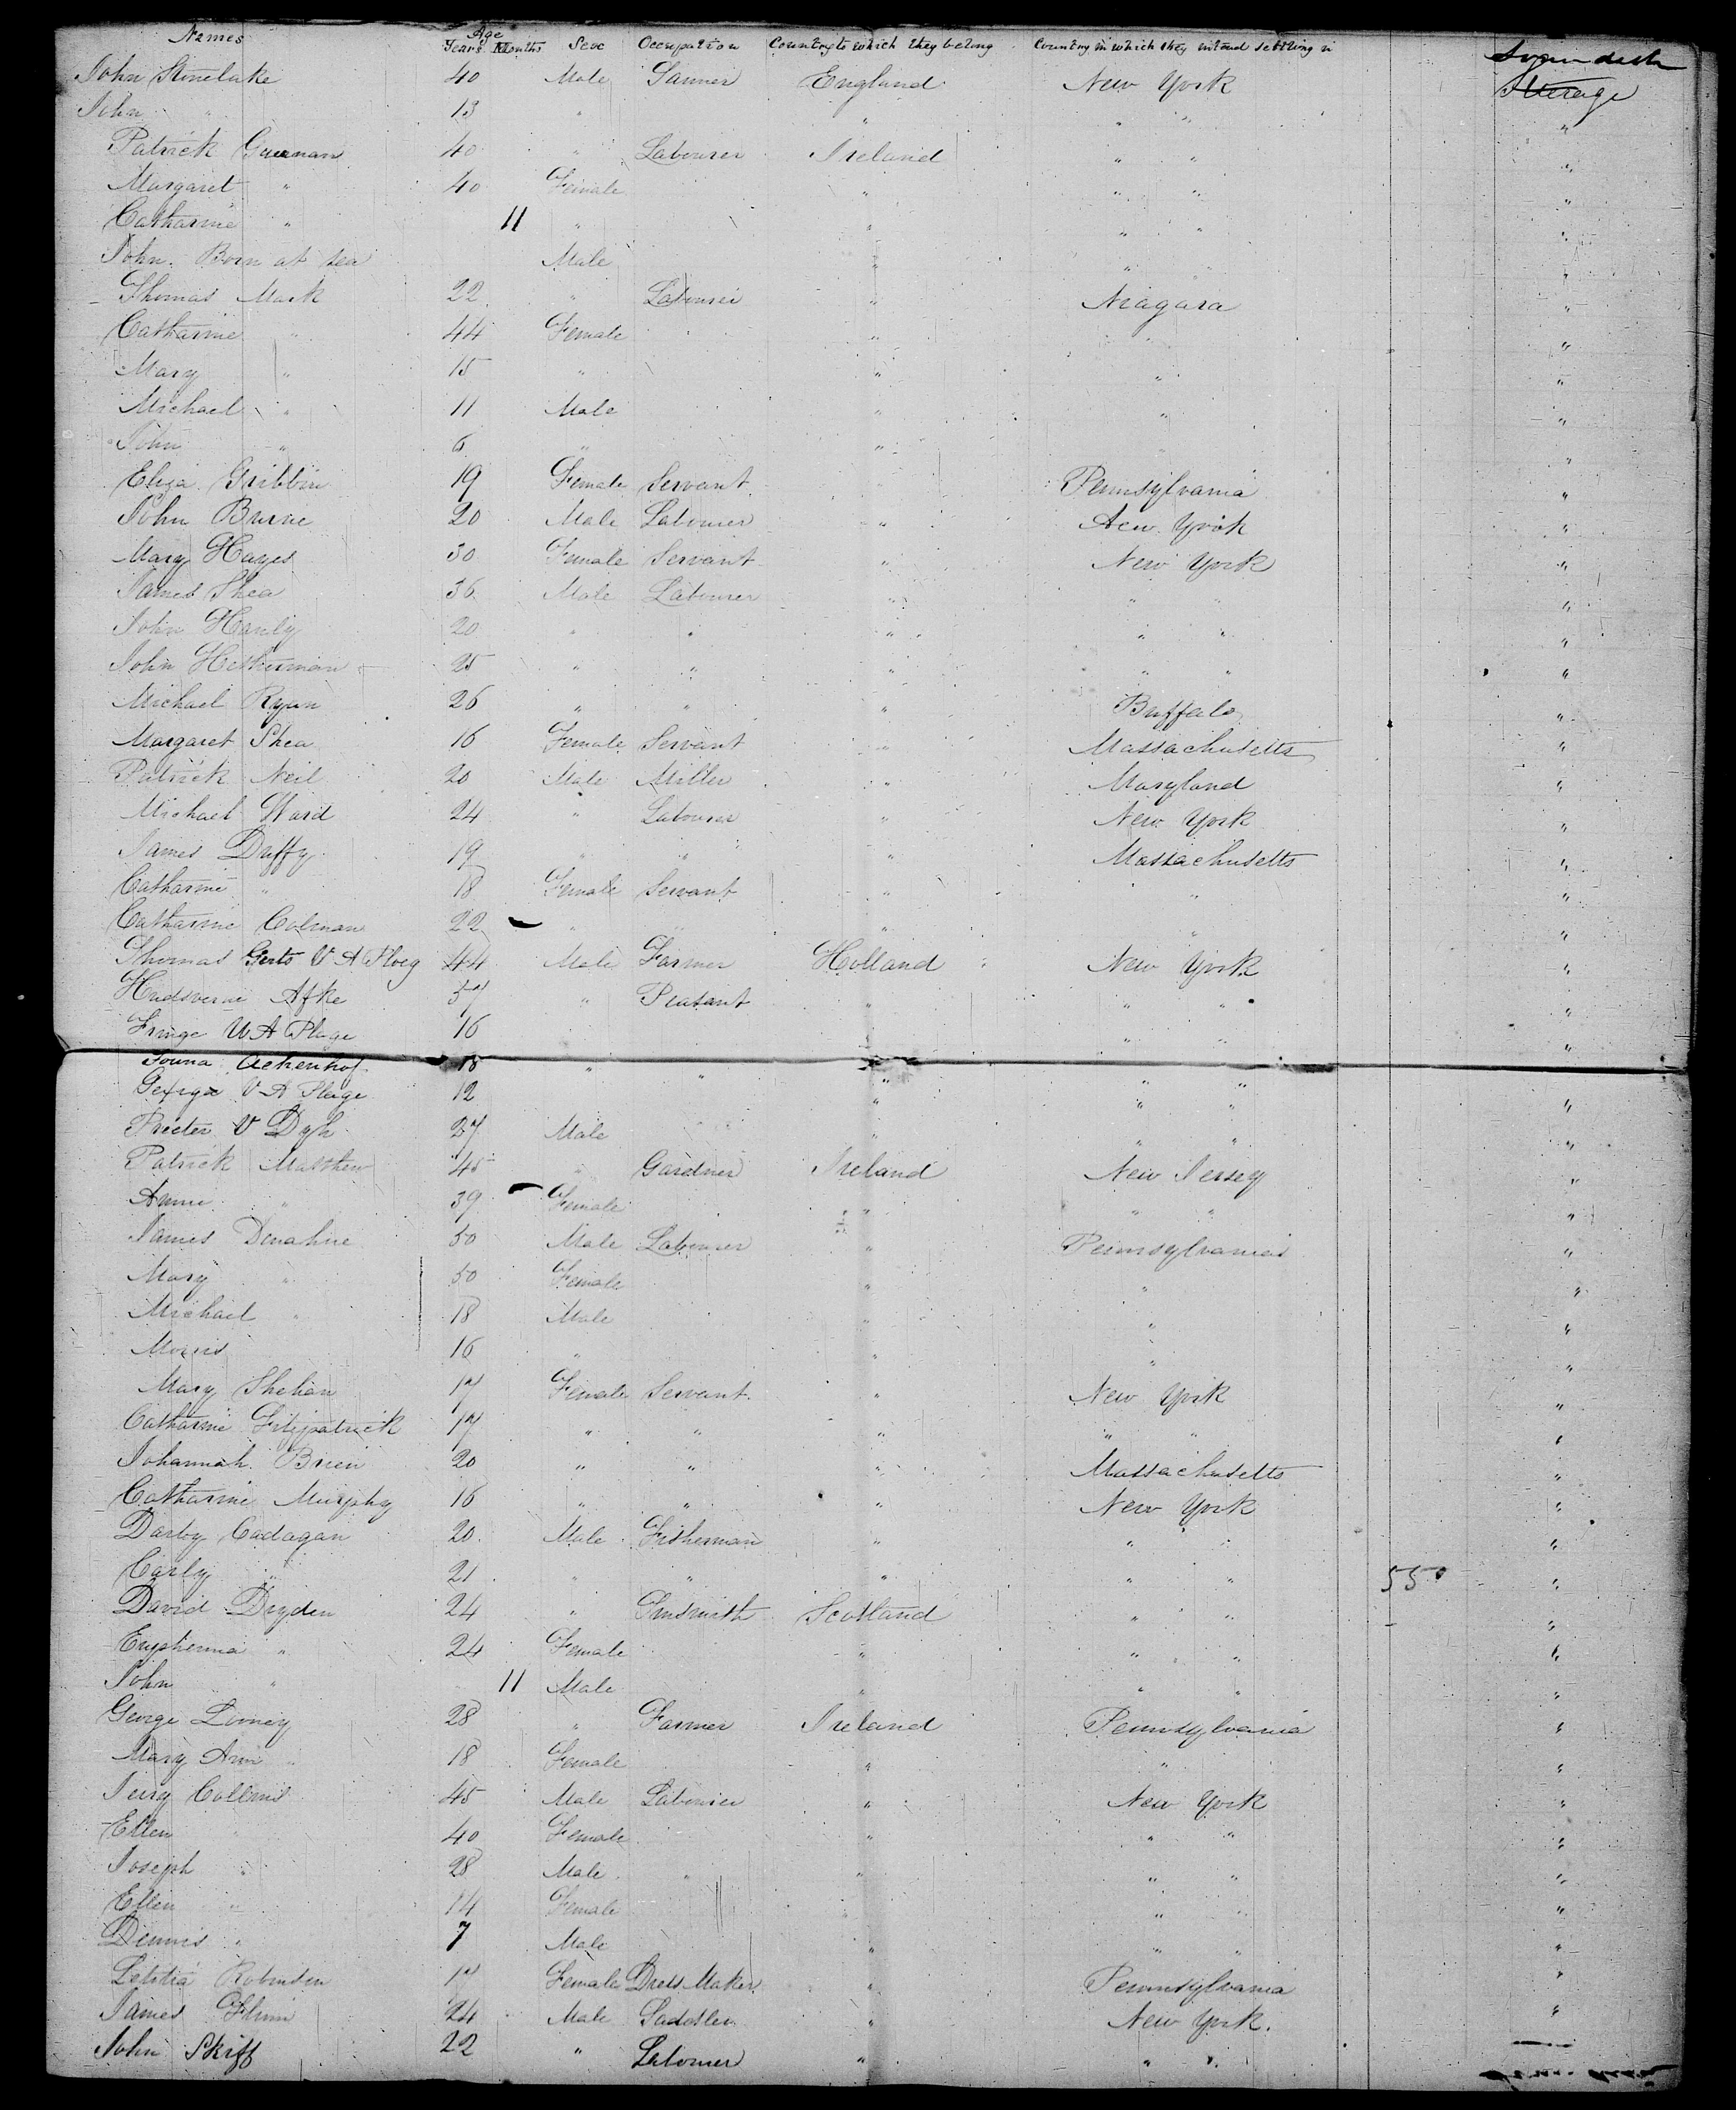 Names Age Years Months Sex Occupation Country to which they belong Country in which they intend settling in
John Stinelake 40 Male Tanner England New York Steerage
John " 13 " " " " "
Patrick 40 " Labourer Ireland " " "
Margaret " 40 Female " " " "
Catharine " 11 " " " " "
John. Born at sea Male " " " "
Thomas Mack 22 " Labourer " Niagara "
Catharine " 44 Female " " "
Mary " 15 " " " "
Michael " 11 Male " " "
John " 6 " " " "
Eliza Gribbin 19 Female Servant " Pennsylvania "
John Burne 20 Male Labourer " New York "
Mary Hayes 30 Female Servant " New York "
James Shea 36 Male Labourer " " " "
John Hanly 20 " " " " " "
John Hetherman 25 " " " " " "
Michael Ryan 26 " " " Buffalo "
Margaret Shea 16 Female Servant " Massachusetts "
Patrick Neil 20 Male Miller " Maryland "
Michael Ward 24 " Labourer " New York "
James Duffy 19 " " " Massachusetts "
Catharine " 18 Female Servant " " "
Catharine Colman 22 " " " " "
Thomas Gerts V A Ploeg 44 Male Farmer Holland New York "
Afke 57 " Peasant " " " "
V A Plage 16 " " " "
18 " " " " " "
V A Plage 12 " " " "
V Dyk 27 Male " " " "
Patrick Matthew 45 " Gardner Ireland New Jersey "
Anne " 39 Female " " " "
James Donahue 50 Male Labourer " Pennsylvania "
Mary " 50 Female " " "
Michael " 18 Male " " "
Morris 16 " " " "
Mary Shehan 17 Female Servant " New York "
Catharine Fitzpatrick 17 " " " " " "
Johannah Brien 20 " " " Massachusetts "
Catharine Murphy 16 " " " New York "
Darby Cadagan 20 Male Fisherman " " " "
Carly " 21 " " " " " 55 "
David Dryden 24 " Tinsmith Scotland " " "
" 24 Female " " " "
John " 11 Male " " " "
George Looney 28 " Farmer Ireland Pennsylvania "
Mary Ann " 18 Female " " "
Jerry Collins 45 Male Labourer " New York "
Ellen " 40 Female " " " "
Joseph " 28 Male " " " " "
Ellen " 14 Female " " " "
Dennis " 7 Male " " " "
Letitia Robinson 17 Female Dress Maker " Pennsylvania "
James Flinn 24 Male Saddler " New York. "
John Skiff 22 " Labourer " " "